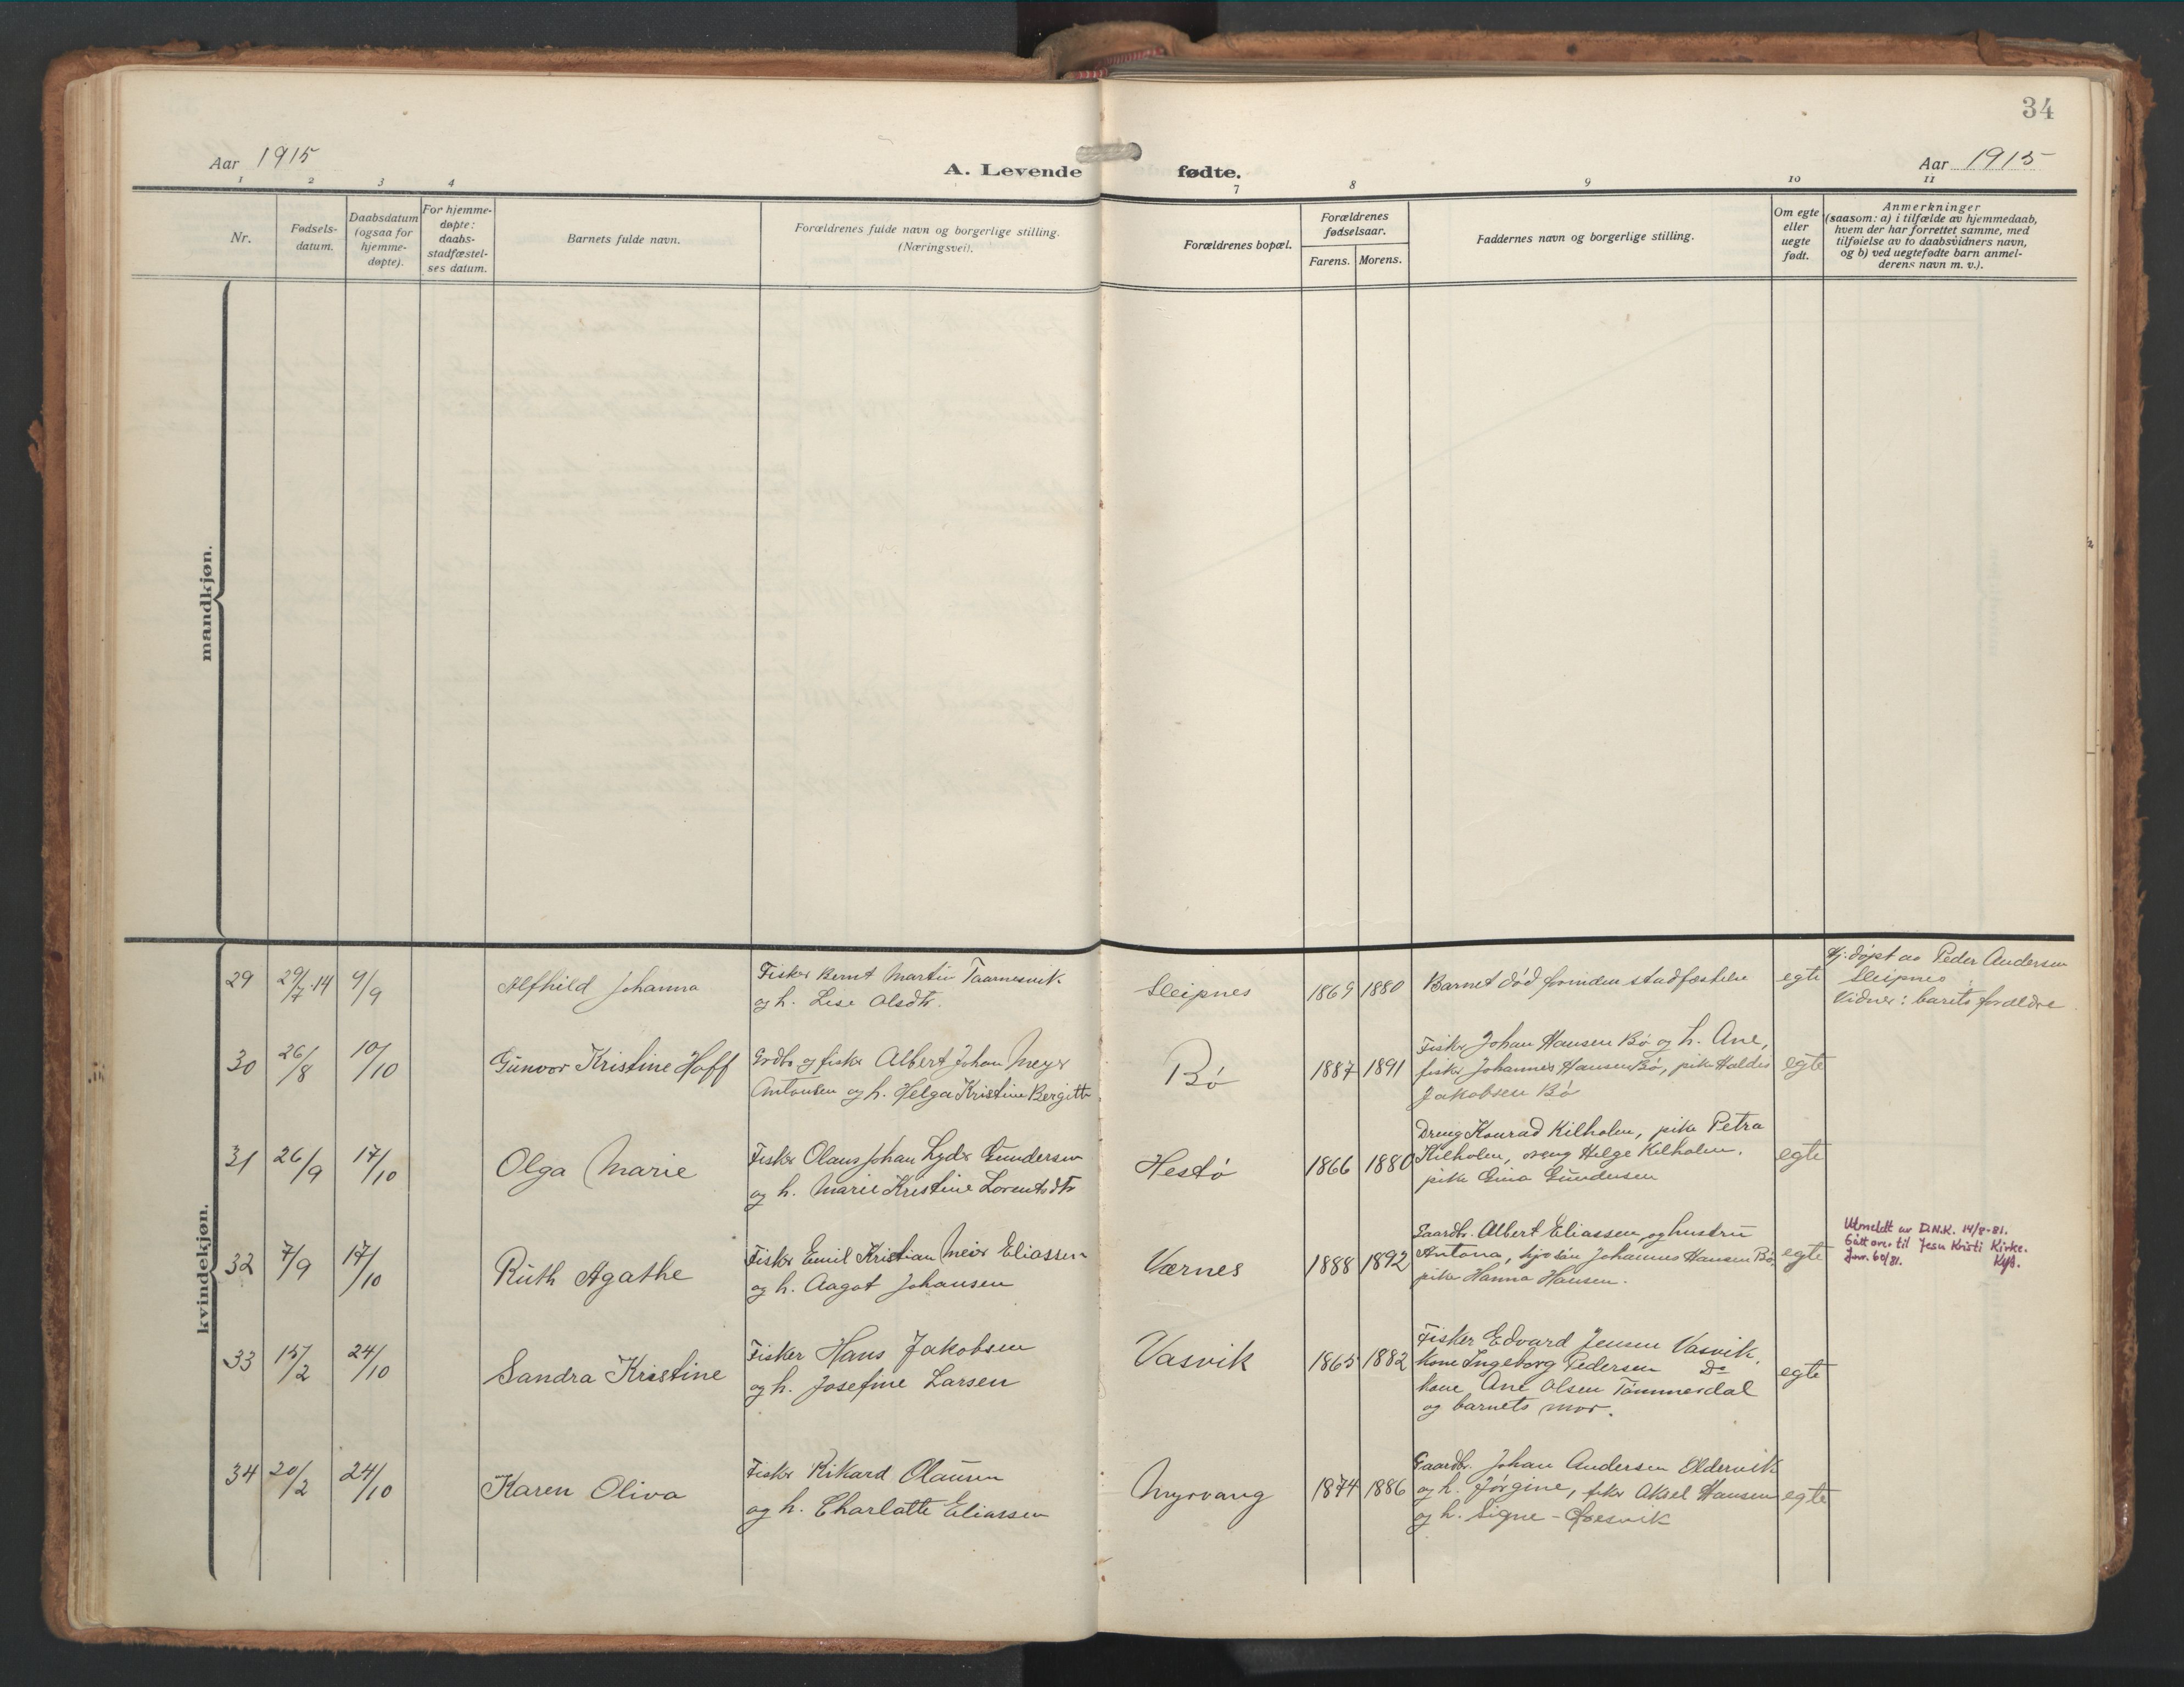 34
Aar 1915
A. Levende fødte.
Aar 1915
1 2 3 4 7 8 9 10 11
Nr.
Fødsels-
datum.
Daabsdatum
(ogsaa for
hjemme-
døpte).
For hjemme-
døpte:
daabs-
stadfæstel-
ses datum.
Barnets fulde navn.
Forældrenes fulde navn og borgerlige stilling.
(Næringsvei).
Forældrenes bopæl.
Forældrenes
fødselsaar.
Farens. Morens.
Faddernes navn og borgerlige stilling.
Om egte
eller
uegte
født.
Anmerkninger
(saasom: a) i tilfælde av hjemmedaab,
hvem der har forrettet samme, med
tilføielse av to daabsvidners navn,
og b) ved uegtefødte barn anmel-
derens navn m. v.).
mandkjøn.
kvindekjøn.
29 29/7-14 9/9
Alfhild Johanna
Fisker Bernt Martin Taarnesvik
og h. Lise Olsdtr.
Sleipnes
1869 1880
Barnet død forinden stadfæstelse
egte
Hj. døpt av Peder Andersen
Sleipnes
Vidner: barets forældre
30 26/8 10/10
Gunvor Kristine Hoff
Grdbr. og fisker Albert Johan Meyer
Antonsen og h. Helga Kristine Bergitte
Bø
1887 1891
Fisker Johan Hansen Bø og h. Ane,
fisker Johannes Hansen Bø, pike Haldis
Jakobsen Bø
egte
31 26/9 17/10
Olga Marie
Fisker Olaus Johan Lyder Gundersen
og h. Marie Kristine Lorentsdtr
Hestø
1866 1880
Dreng Konrad Kilholm, pike Petra
Kilholm, dreng Helge Kilholm.
pike Gina Gundersen
egte
32 7/9 17/10
Ruth Agathe
Fisker Emil Kristian Meier Eliassen
og h. Aagot Johansen
Værnes
1888 1892
Gaardbr. Albert Eliassen og hustru
Antona, Johannes Hansen Bø,
pike Hanna Hansen.
egte
Utmeldt av D.N.K. 14/8-81.
Gått over til Jesu Kristi Kirke.
Jnr. 60/81.
33 15/2 24/10
Sandra Kristine
Fisker Hans Jakobsen
og h. Josefine Larsen
Vasvik
1865 1882
Fisker Edvard Jensen Vasvik,
kone Ingeborg Pedersen Do
kone Ane Olsen Tømmerdal
og barnets mor.
egte
34 20/2 24/10
Karen Oliva
Fisker Rikard Olausen
og h. Charlotte Eliassen
Myrvang
1874 1886
Gaardbr. Johan Andersen Oldervik
og h. Jørgine, fisker Aksel Hansen
og h. Signe -
egte